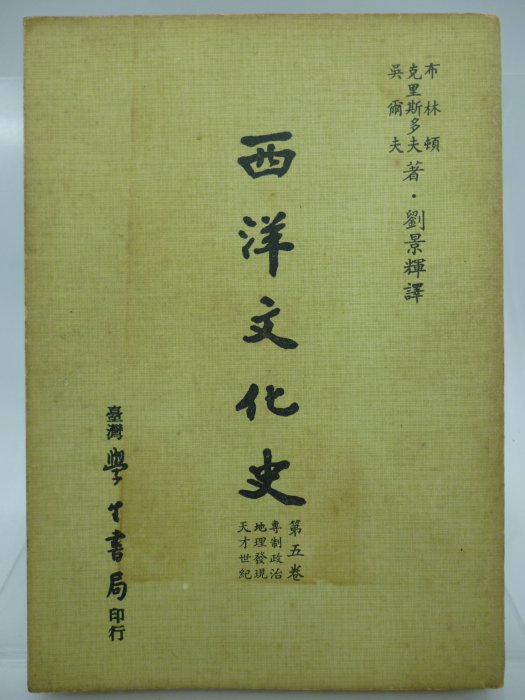 布林頓
克里斯多夫
吳爾夫
著・劉景輝譯
西洋文化史
第五卷
專制政治
地理發現
天才世紀
臺灣學生書局印行